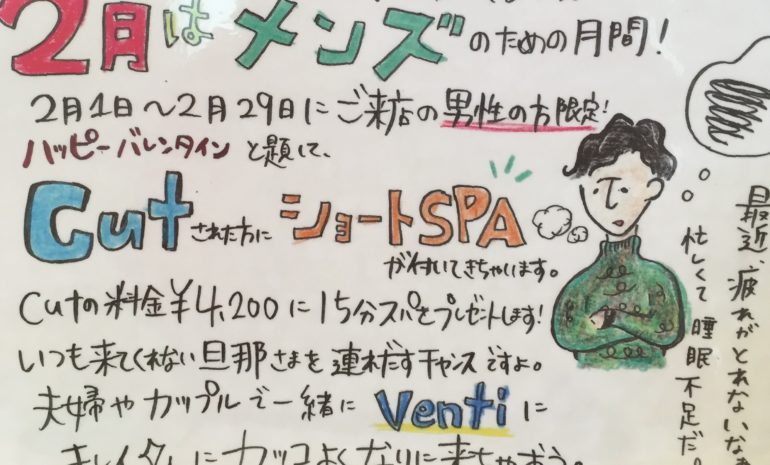 2月はメンズのための月間!
2月1日〜2月29日にご来店の男性の方限定!
ハッピーバレンタインと題して、
Cutされた方にショートSPA
が付いてきちゃいます。
Cutの料金¥4,200に15分スパをプレゼントします!
いつも来てくれない旦那さまを連れだすチャンスですよ。
夫婦やカップルで一緒にVentiに
キレイに カッコよくなりに来ちゃおう。
最近、疲れがとれないなぁ
忙しくて睡眠不足だ。